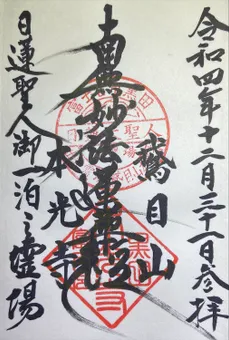 令和四年十二月三十一日参拝
鵞目山
南無妙法蓮華経
本光寺
日蓮聖人御一泊之霊場